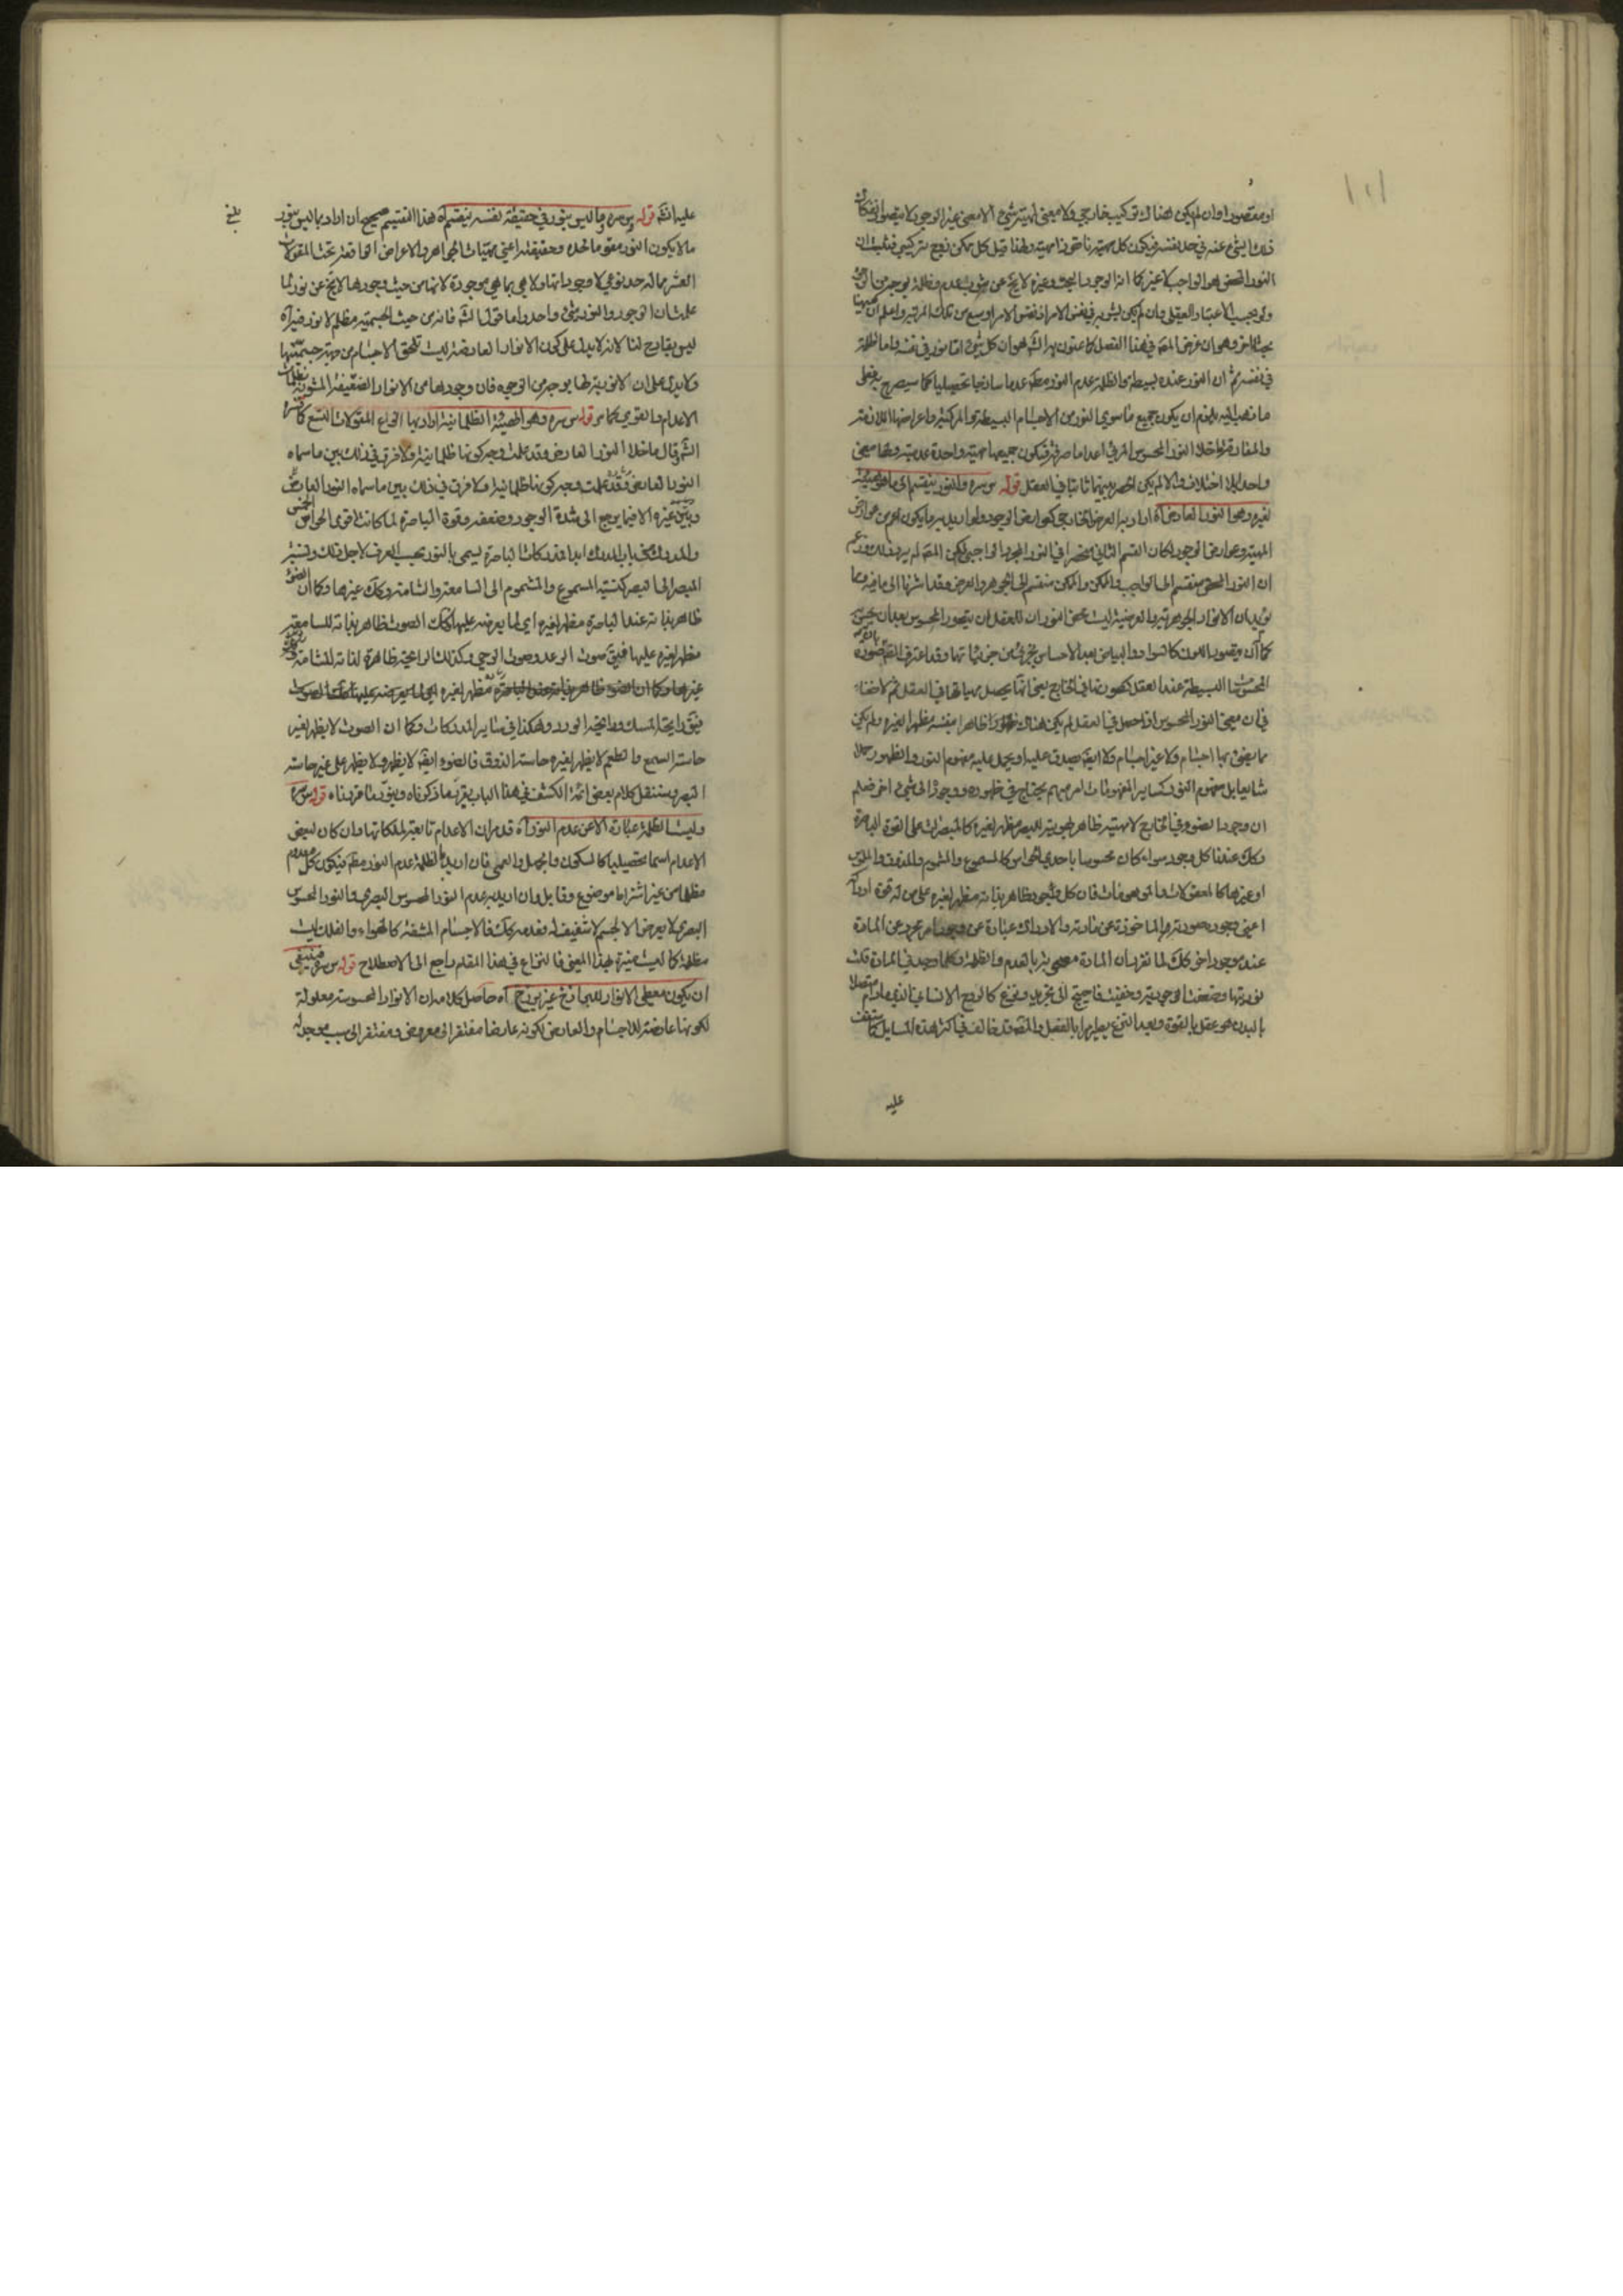 ١٠١
او مقصودا وان لم يكن هناك تركيب خارجي ولا معنى لمهية شيء الا معنى غير الوجود لا يتصور انفكاك
ذلك الشيء عنه في حد نفسه فيكون كل مهية ناقصة ولهذا قيل كل ممكن زوج تركيبي فثبت ان
النور المحض هو الواجب لا غير كما ان الوجود البحت وغيره لا يخ عن شوب عدم وظلمة بوجه من
ولو بحسب الاعتبار العقلي وان لم يكن في نفس الامر اوسع من تلك المرتبة واعلم ان ههنا
بحثا اخر وهو ان غرض المصـ في هذا الفصل كما عنون به هو ان كل شيء اما نور في نفسه واما ظلمة
في نفسه ثم ان النور عنده بسيطة والظلمة عدم النور مطـ عدما ساذجا تحصيليا كما سيصرح به فعلى
ما ذهب اليه يلزم ان يكون جميع ما سوى النور من الاجسام البسيطة والمركبة واعراضها
والمفارقة ما خلا النور المحسوس المرئي اعداما صرفة فيكون جميعها مهية واحدة عدمية ولها معنى
واحد بلا اختلاف والا لم يكن الحصر بينهما ثابتا في العقل قوله س سره والنور ينقسم الى ما هو هيئة
لغيره وهو النور العارض آه اراد به العرض الخارجي كعوارض الوجود ولو اريد به ما يكون اعم من عوارض
المهية وعوارض الوجود لكان القسم الثاني منحصرا في النور المجرد الواجبي لكن المصـ لم يرد ذلك
ان النور المحض ينقسم الى الواجب والممكن والممكن منقسم الى الجوهر والعرض وقد اشرنا الى ما فيه ومما
يؤيد ان الانوار الجوهرية والعرضية ليست محض النور ان للعقل ان يتصور المحسوس بعد ان يحس به
كما ان يتصور اللون كالسواد والبياض بعد الاحساس بجزئي من جزئياتها وقد اعترف المصـ
المحسوسات البسيطة عند العقل كصورتها في الخارج يعني انما يحصل بمهياتها في العقل ثم لا خفاء
في ان معنى النور المحسوس اذا حصل في العقل لم يكن هناك ظاهرا بنفسه مظهرا لغيره ولم يكن
مما يضيء بها اجسام ولا غير اجسام ولا ايضـ يصدق عليه او يحمل عليه مفهوم النور والظهور حملا
شايعا بل مفهوم النور كساير المفهومات امر مبهم يحتاج في ظهوره ووجوده الى شيء اخر فعلم
ان وجود الضوء في الخارج لا مهيته ظاهر لهويته للبصر مظهر لغيره كالمبصرات على القوة الباصرة
وكك عندنا كل وجود سواء كان محسوسا باحدى الحواس كالمسموع والمشموم والمذوق والملموس
او غيرها كالمعقولات والموهومات فان كل وجود ظاهر بذاته مظهر لغيره على من له قوة ادراكه
اعني وجود صورته الماخوذة عن مادته والادراك عبارة عن وجود امر مجرد عن المادة
عند موجود اخر كك لما تقرر ان المادة بالعدم والظلمة فكلما وجد في المادة قلت
نوريتها وضعفت موجوديته وخفيت فاحتيج الى تجريد ونزع كالروح الانساني الذي ما دام متصلا
بالبدن هو عقل بالقوة وبعد النزع يصير عقلا بالفعل والمصـ قد خالف في اكثر هذه المسايل كما ستقف
عليه
عليه انشـ قوله س سره وما ليس بنور في حقيقة نفسه ينقسم آه هذا التقسيم صحيح ان اراد بما ليس بنور
ما لا يكون النور مقوما لحده وحقيقته اعني مهيات الجواهر والاعراض الواقعة تحت المقولات
العشر مما له حد نوعي لا وجوداتها ولا هي بما هي موجودة لانها من حيث وجودها لا يخ عن نور لما
علمت ان الوجود والنور شيء واحد واما قول الشـ فانه من حيث الجسمية مظلم لا نور فيه آه
ليس بقادح لنا لانه لا يدل على كون الانوار العارضة ليست تلحق الاجسام من جهة جسميتها
ولا يدل على ان لا نورية لها بوجه من الوجوه فان وجودها من الانوار الضعيفة المشوبة بظلمات
الاعدام والقوى كما مر قوله س سره وهو الهيئة الظلمانية اراد بها انواع المقولات التسع كما فسره
الشـ وقال ما خلا النور العارض وقد علمت وجه كونها ظلمانية ولا فرق في ذلك بين ما سماه
النور العارض وقد علمت وجه كونها ظلمانية ولا فرق في ذلك بين ما سماه النور العارض
وبين غيره الا فيما يرجع الى شدة الوجود وضعفه وقوة الباصرة لما كانت اقوى الحواس الخمس
والمدرك من باب المدرك ابدا فمدركات الباصرة يسمى بالنور بحسب العرف لاجل ذلك ونسبة
المبصر الى البصر كنسبة المسموع والمشموم الى السامعة والشامة وكك غيرها وكما ان الضوء
ظاهر بذاته عند الباصرة مظهر لغيره اي لما يعرضه عليها فكك الصوت ظاهر بذاته للسامعة
مظهر لغيره عليها فيقـ صوت الرعد وصوت الرحى وكذلك الرايحة ظاهرة لذاته للشامة
غيرها وكما ان الضوء ظاهر بذاته عند الباصرة مظهر لغيره اي لما يعرضه عليها فكك الصوت
فيقـ رايحة المسك ورايحة الورد وهكذا في ساير المدركات وكما ان الصوت لا يظهر لغير
حاسة السمع والطعم لا يظهر لغير حاسة الذوق فالضوء ايضـ لا يظهر ولا يظهر على غير حاسة
البصر وسننقل كلام بعض ائمة الكشف في هذا الباب يقرب ما ذكرناه ويؤيد ما قررناه قوله س سره
وليست الظلمة عبارة الا عن عدم النور آه قد مر ان الاعدام تابعة لملكاتها وان كان لبعض
الاعدام اسما تحصيليا كالسكون والجهل والعمى فان اريد بالظلمة عدم النور مطـ فيكون كل معدوم
مظلما من غير اشتراط موضوع وقابل وان اريد به عدم النور المحسوس البصري والنور المحسوس
البصري لا يعرض الا لجسم لا شفيف له فعدمه كك فالاجسام المشفة كالهواء والفلك ليست
مظلمة كما ليست منيرة بهذا المعنى فالنزاع في هذا المقام راجع الى الاصطلاح قوله س سره فينبغي
ان يكون معطي الانوار للبرازخ غير برزخ آه حاصل كلامه ان الانوار المحسوسة معلولة
لكونها عارضة للاجسام والعارض لكونه عارضا مفتقر الى معروض ومفتقر الى سبب موجد له